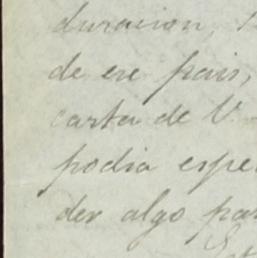 duracion,
de ese pais,
carta de V.
podia espe
der algo par